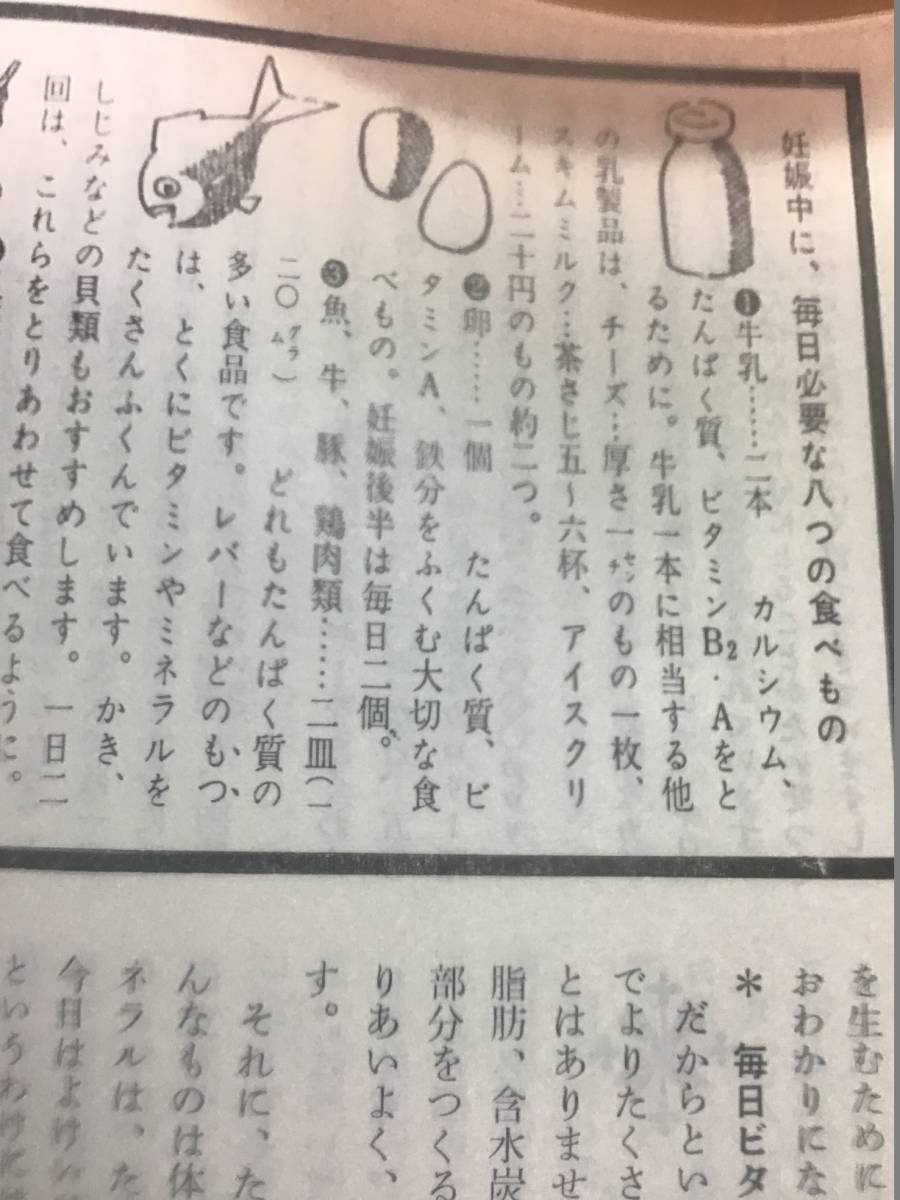 妊娠中に、毎日必要な八つの食べもの
❶牛乳……二本　カルシウム、
たんぱく質、ビタミンB₂・Aをと
るために。牛乳一本に相当する他
の乳製品は、チーズ…厚さ一センチのもの一枚、
スキムミルク…茶さじ五～六杯、アイスクリ
ーム…二十円のもの約二つ。
❷卵……一個　たんぱく質、ビ
タミンA、鉄分をふくむ大切な食
べもの。妊娠後半は毎日二個。
❸魚、牛、豚、鶏肉類……二皿（一
二〇グラム）　どれもたんぱく質の
多い食品です。レバーなどのもつ
は、とくにビタミンやミネラルを
たくさんふくんでいます。かき、
しじみなどの貝類もおすすめします。一日二
回は、これらをとりあわせて食べるように。
を生むために
おわかりにな
＊　毎日ビタ
だからとい
でよりたくさ
とはありませ
脂肪、含水炭
部分をつくる
りあいよく、
す。
それに、た
んなものは体
ネラルは、た
今日はよけい
というわけには